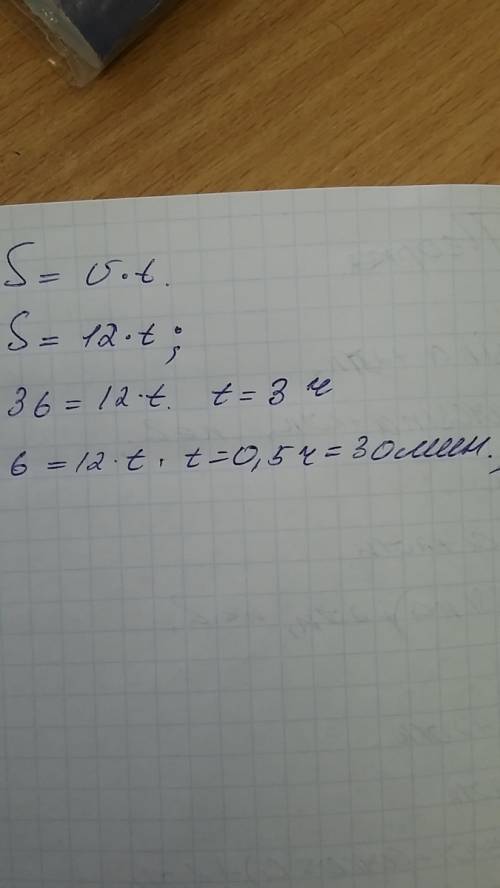 S = v·t.
S = 12·t;
36 = 12·t. t = 3 ч
6 = 12·t. t = 0,5 ч = 30 мин.